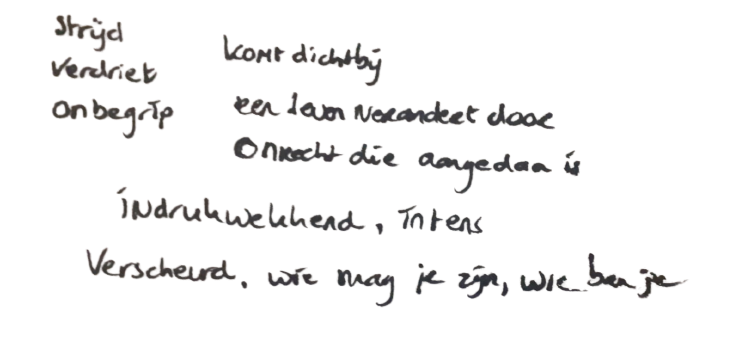 Strijd
Verdriet
onbegrip
komt dichtbij
een leven verandert door
onrecht die aangedaa is
indrukwekkend, intens
Verscheurd, wie mag je zijn, wie ben je